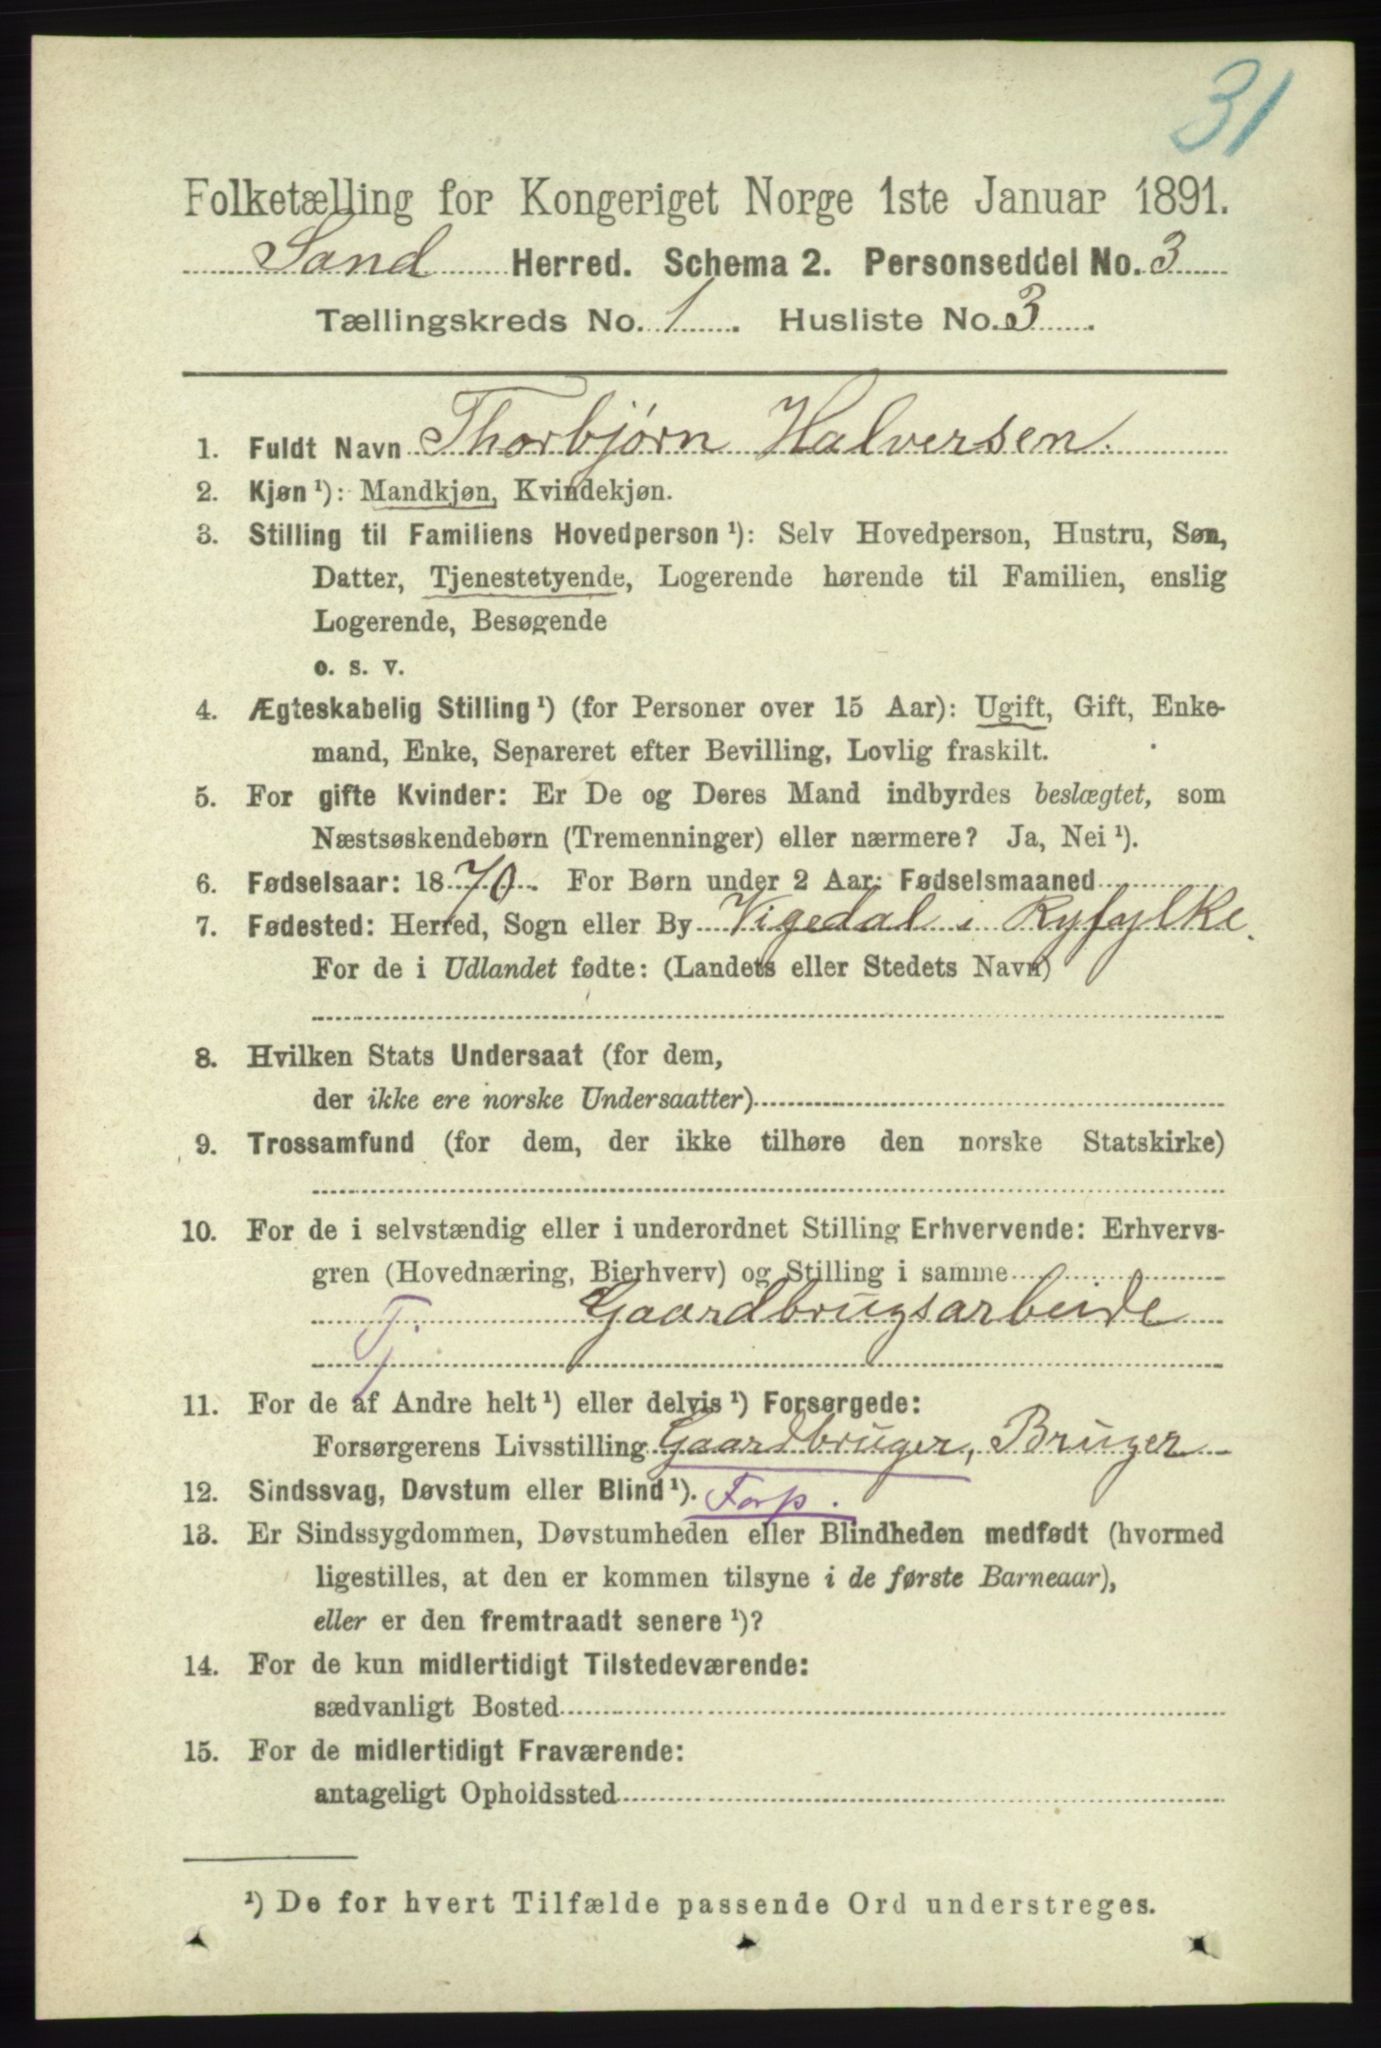 31
Folketælling for Kongeriget Norge 1ste Januar 1891.
Sand Herred. Schema 2. Personseddel No. 3
Tællingskreds No. 1. Husliste No. 3.
1. Fuldt Navn Thorbjørn Halversen.
2. Kjøn ¹): Mandkjøn, Kvindekjøn.
3. Stilling til Familiens Hovedperson ¹): Selv Hovedperson, Hustru, Søn,
Datter, Tjenestetyende, Logerende hørende til Familien, enslig
Logerende, Besøgende
o. s. v.
4. Ægteskabelig Stilling ¹) (for Personer over 15 Aar): Ugift, Gift, Enke-
mand, Enke, Separeret efter Bevilling, Lovlig fraskilt.
5. For gifte Kvinder: Er De og Deres Mand indbyrdes beslægtet, som
Næstsøskendebørn (Tremenninger) eller nærmere? Ja, Nei ¹).
6. Fødselsaar: 1870. For Børn under 2 Aar: Fødselsmaaned
7. Fødested: Herred, Sogn eller By Vigedal i Ryfylke.
For de i Udlandet fødte: (Landets eller Stedets Navn)
8. Hvilken Stats Undersaat (for dem,
der ikke ere norske Undersaatter)
9. Trossamfund (for dem, der ikke tilhøre den norske Statskirke)
10. For de i selvstændig eller i underordnet Stilling Erhvervende: Erhvervs-
gren (Hovednæring, Bierhverv) og Stilling i samme
Tj. Gaardbrugsarbeide
11. For de af Andre helt ¹) eller delvis ¹) Forsørgede:
Forsørgerens Livsstilling Gaardbruger, Bruger
12. Sindssvag, Døvstum eller Blind ¹). Forp.
13. Er Sindssygdommen, Døvstumheden eller Blindheden medfødt (hvormed
ligestilles, at den er kommen tilsyne i de første Barneaar),
eller er den fremtraadt senere ¹)?
14. For de kun midlertidigt Tilstedeværende:
sædvanligt Bosted
15. For de midlertidigt Fraværende:
antageligt Opholdssted
¹) De for hvert Tilfælde passende Ord understreges.